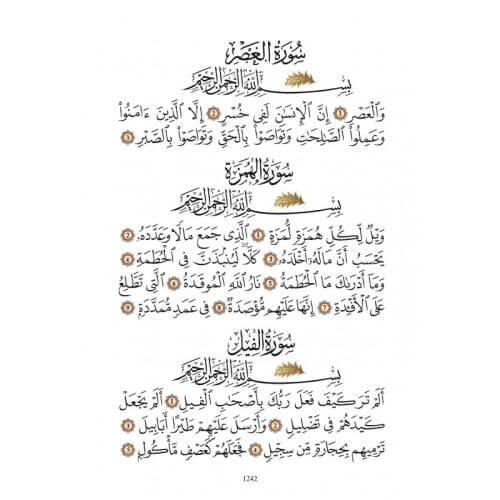 سُورَةُ العَصْرِ
بِسْمِ اللَّهِ الرَّحْمَٰنِ الرَّحِيمِ
وَالْعَصْرِ ١ إِنَّ الْإِنسَٰنَ لَفِى خُسْرٍ ٢ إِلَّا الَّذِينَ ءَامَنُوا۟
وَعَمِلُوا۟ الصَّٰلِحَٰتِ وَتَوَاصَوْا۟ بِالْحَقِّ وَتَوَاصَوْا۟ بِالصَّبْرِ ٣
سُورَةُ الهُمَزَةِ
بِسْمِ اللَّهِ الرَّحْمَٰنِ الرَّحِيمِ
وَيْلٌ لِّكُلِّ هُمَزَةٍ لُّمَزَةٍ ١ الَّذِى جَمَعَ مَالًا وَعَدَّدَهُۥ ٢
يَحْسَبُ أَنَّ مَالَهُۥٓ أَخْلَدَهُۥ ٣ كَلَّا ۖ لَيُنۢبَذَنَّ فِى الْحُطَمَةِ ٤
وَمَآ أَدْرَىٰكَ مَا الْحُطَمَةُ ٥ نَارُ اللَّهِ الْمُوقَدَةُ ٦ الَّتِى تَطَّلِعُ
عَلَى الْأَفْـِٔدَةِ ٧ إِنَّهَا عَلَيْهِم مُّؤْصَدَةٌ ٨ فِى عَمَدٍ مُّمَدَّدَةٍۭ ٩
سُورَةُ الفِيلِ
بِسْمِ اللَّهِ الرَّحْمَٰنِ الرَّحِيمِ
أَلَمْ تَرَ كَيْفَ فَعَلَ رَبُّكَ بِأَصْحَٰبِ الْفِيلِ ١ أَلَمْ يَجْعَلْ
كَيْدَهُمْ فِى تَضْلِيلٍ ٢ وَأَرْسَلَ عَلَيْهِمْ طَيْرًا أَبَابِيلَ ٣
تَرْمِيهِم بِحِجَارَةٍ مِّن سِجِّيلٍ ٤ فَجَعَلَهُمْ كَعَصْفٍ مَّأْكُولٍۭ ٥
1242